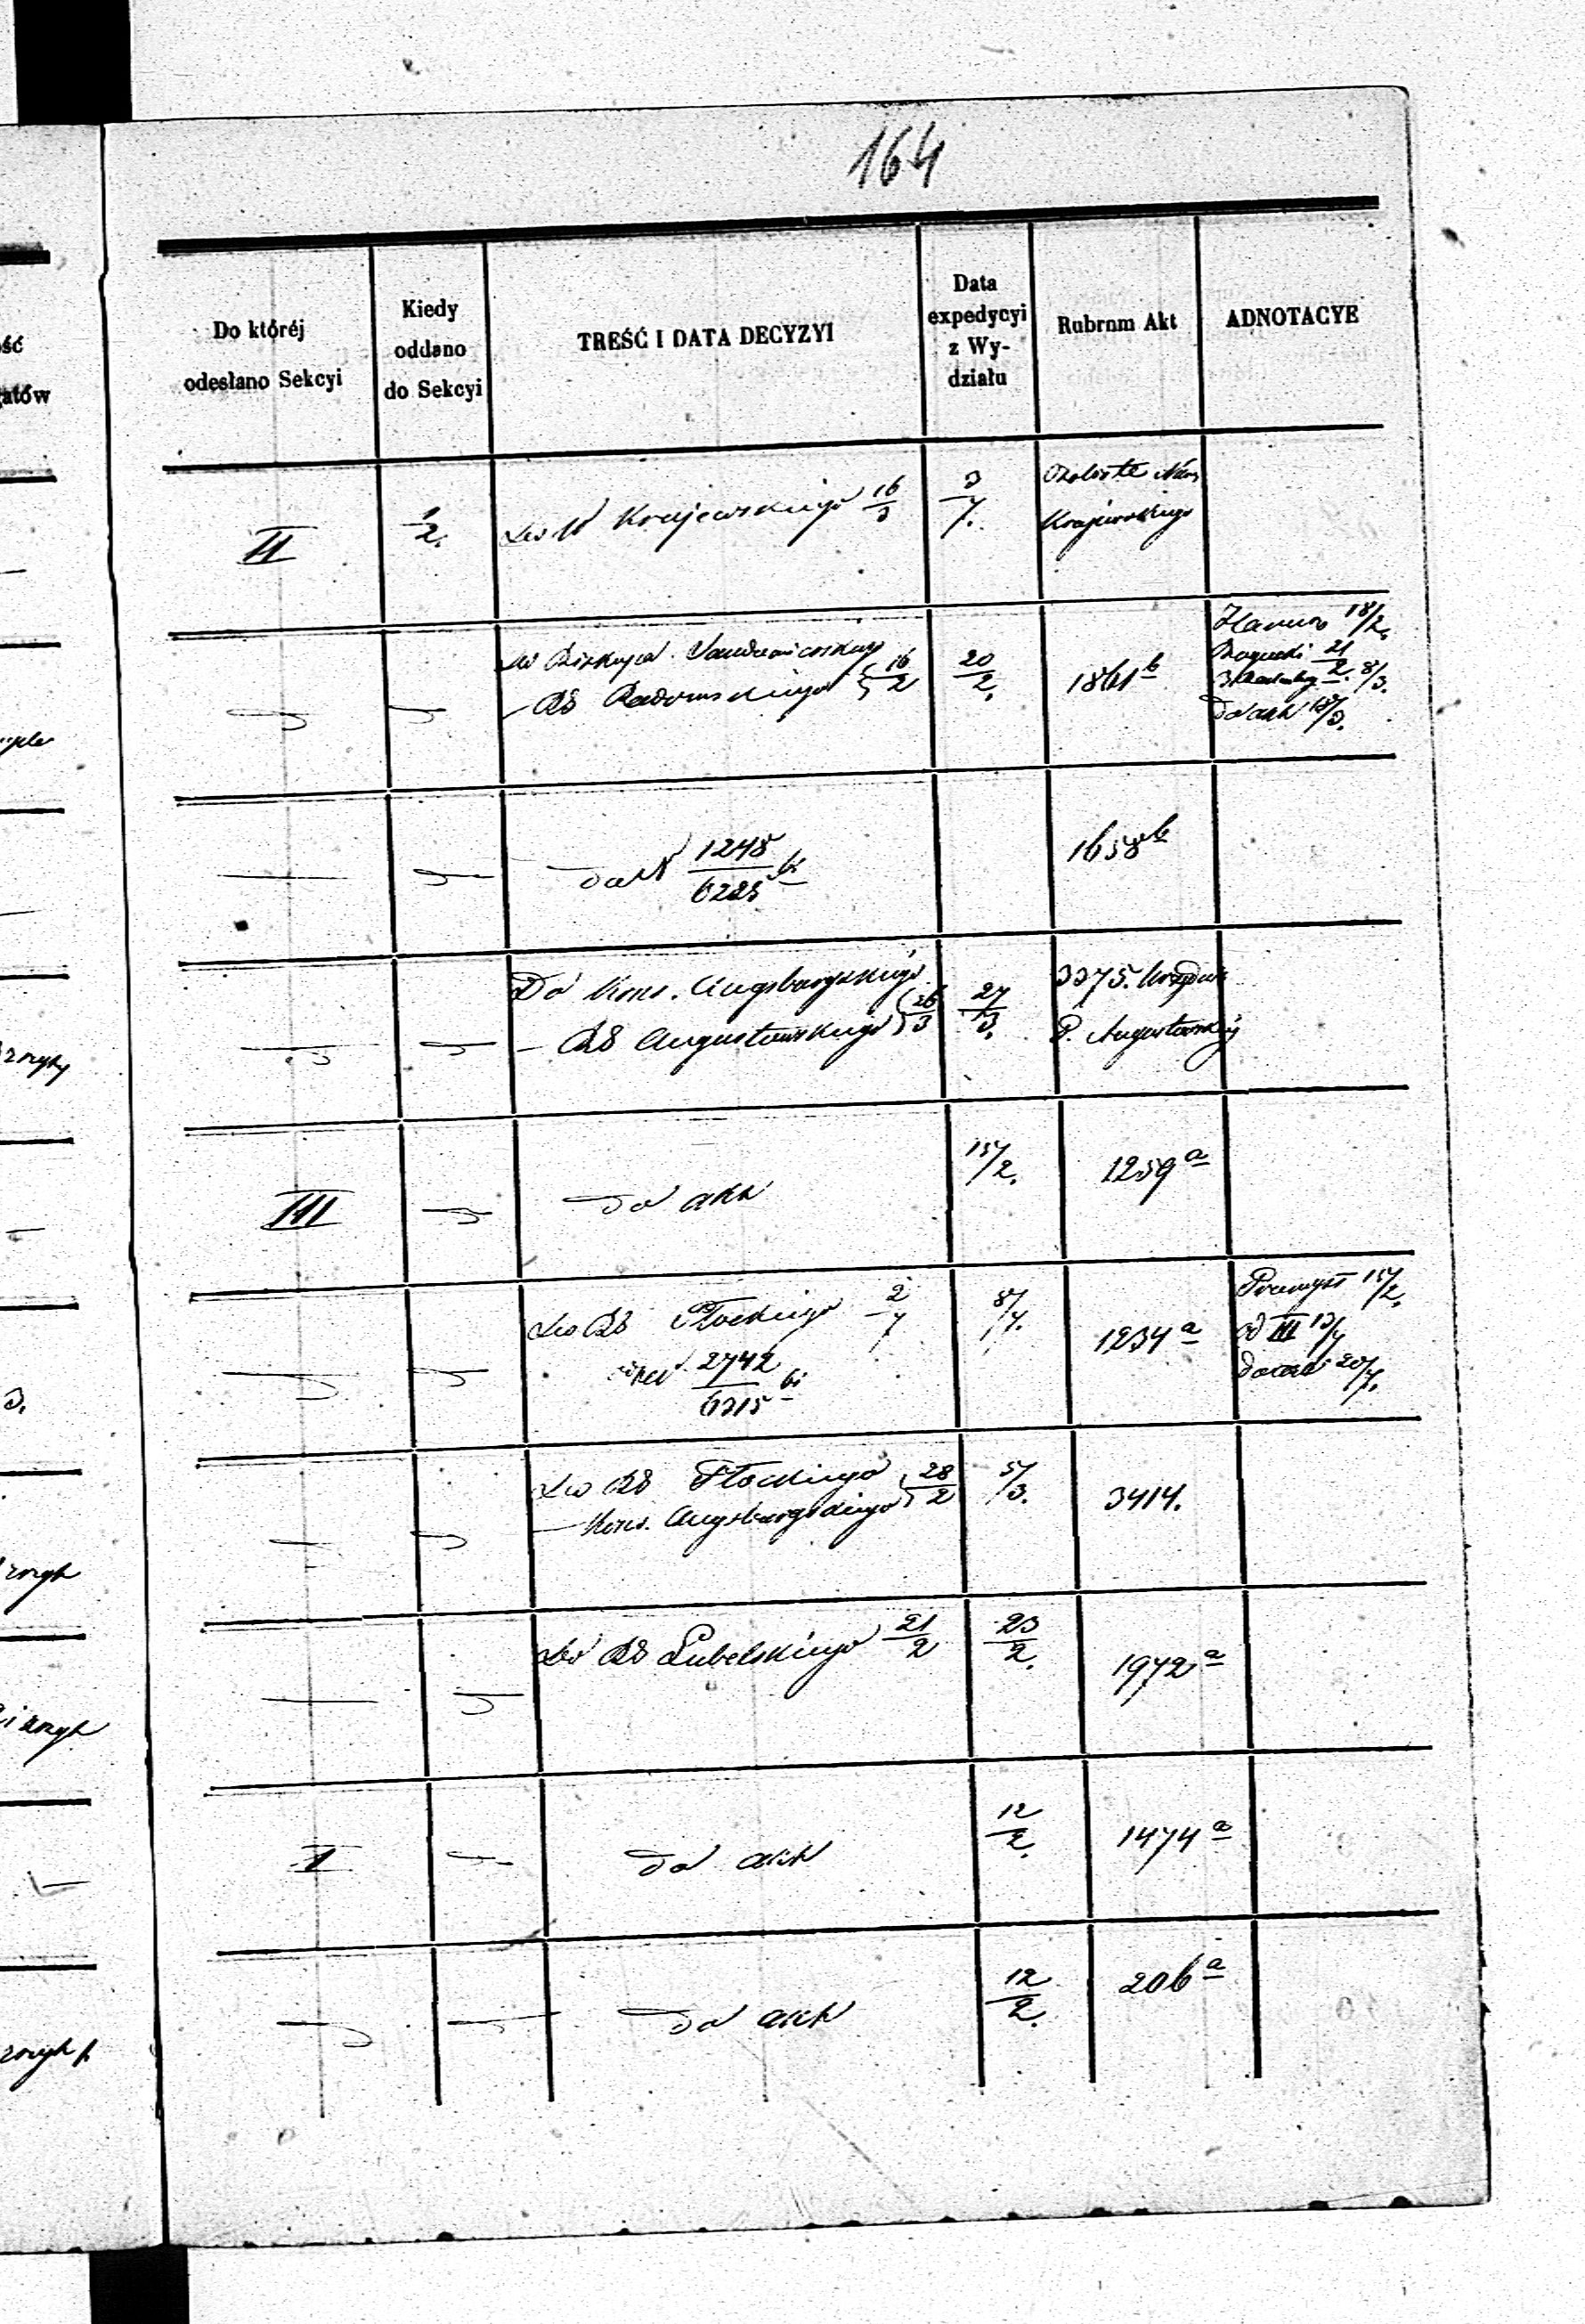 164
Do któréj
odesłano Sekcyi
Kiedy
oddano
do Sekcyi
TREŚĆ I DATA DECYZYI
Data
expedycyi
z Wy-
działu
Rubrnm Akt
ADNOTACYE
II
1/2.
Krajewskiego 16/3
3/4.
Krajewskiego
Biskupa Sandomierskiego
— RG Radomskiego } 16/2
20/2.
1861 b
18/2.
21/2. 8/3.
do akt 18/3.
do N 1248/6285 bi
1658 b
Do Kons. Augsburgskiego
— RG Augustowskiego } 26/3
27/3.
3375.
P. Augustowskiej
III
do akt
15/2.
1259 a
Do RG Płockiego 2/4
2742/6315 bi
8/4.
1234 a
Przemysł 15/2.
od III 13/4
do akt 20/4.
Do RG Płockiego
— Kons. Augsburgskiego } 28/2
5/3.
3414.
Do RG Lubelskiego 21/2
23/2.
1972 a
I
do akt
12/2.
1474 a
do akt
12/2.
206 a